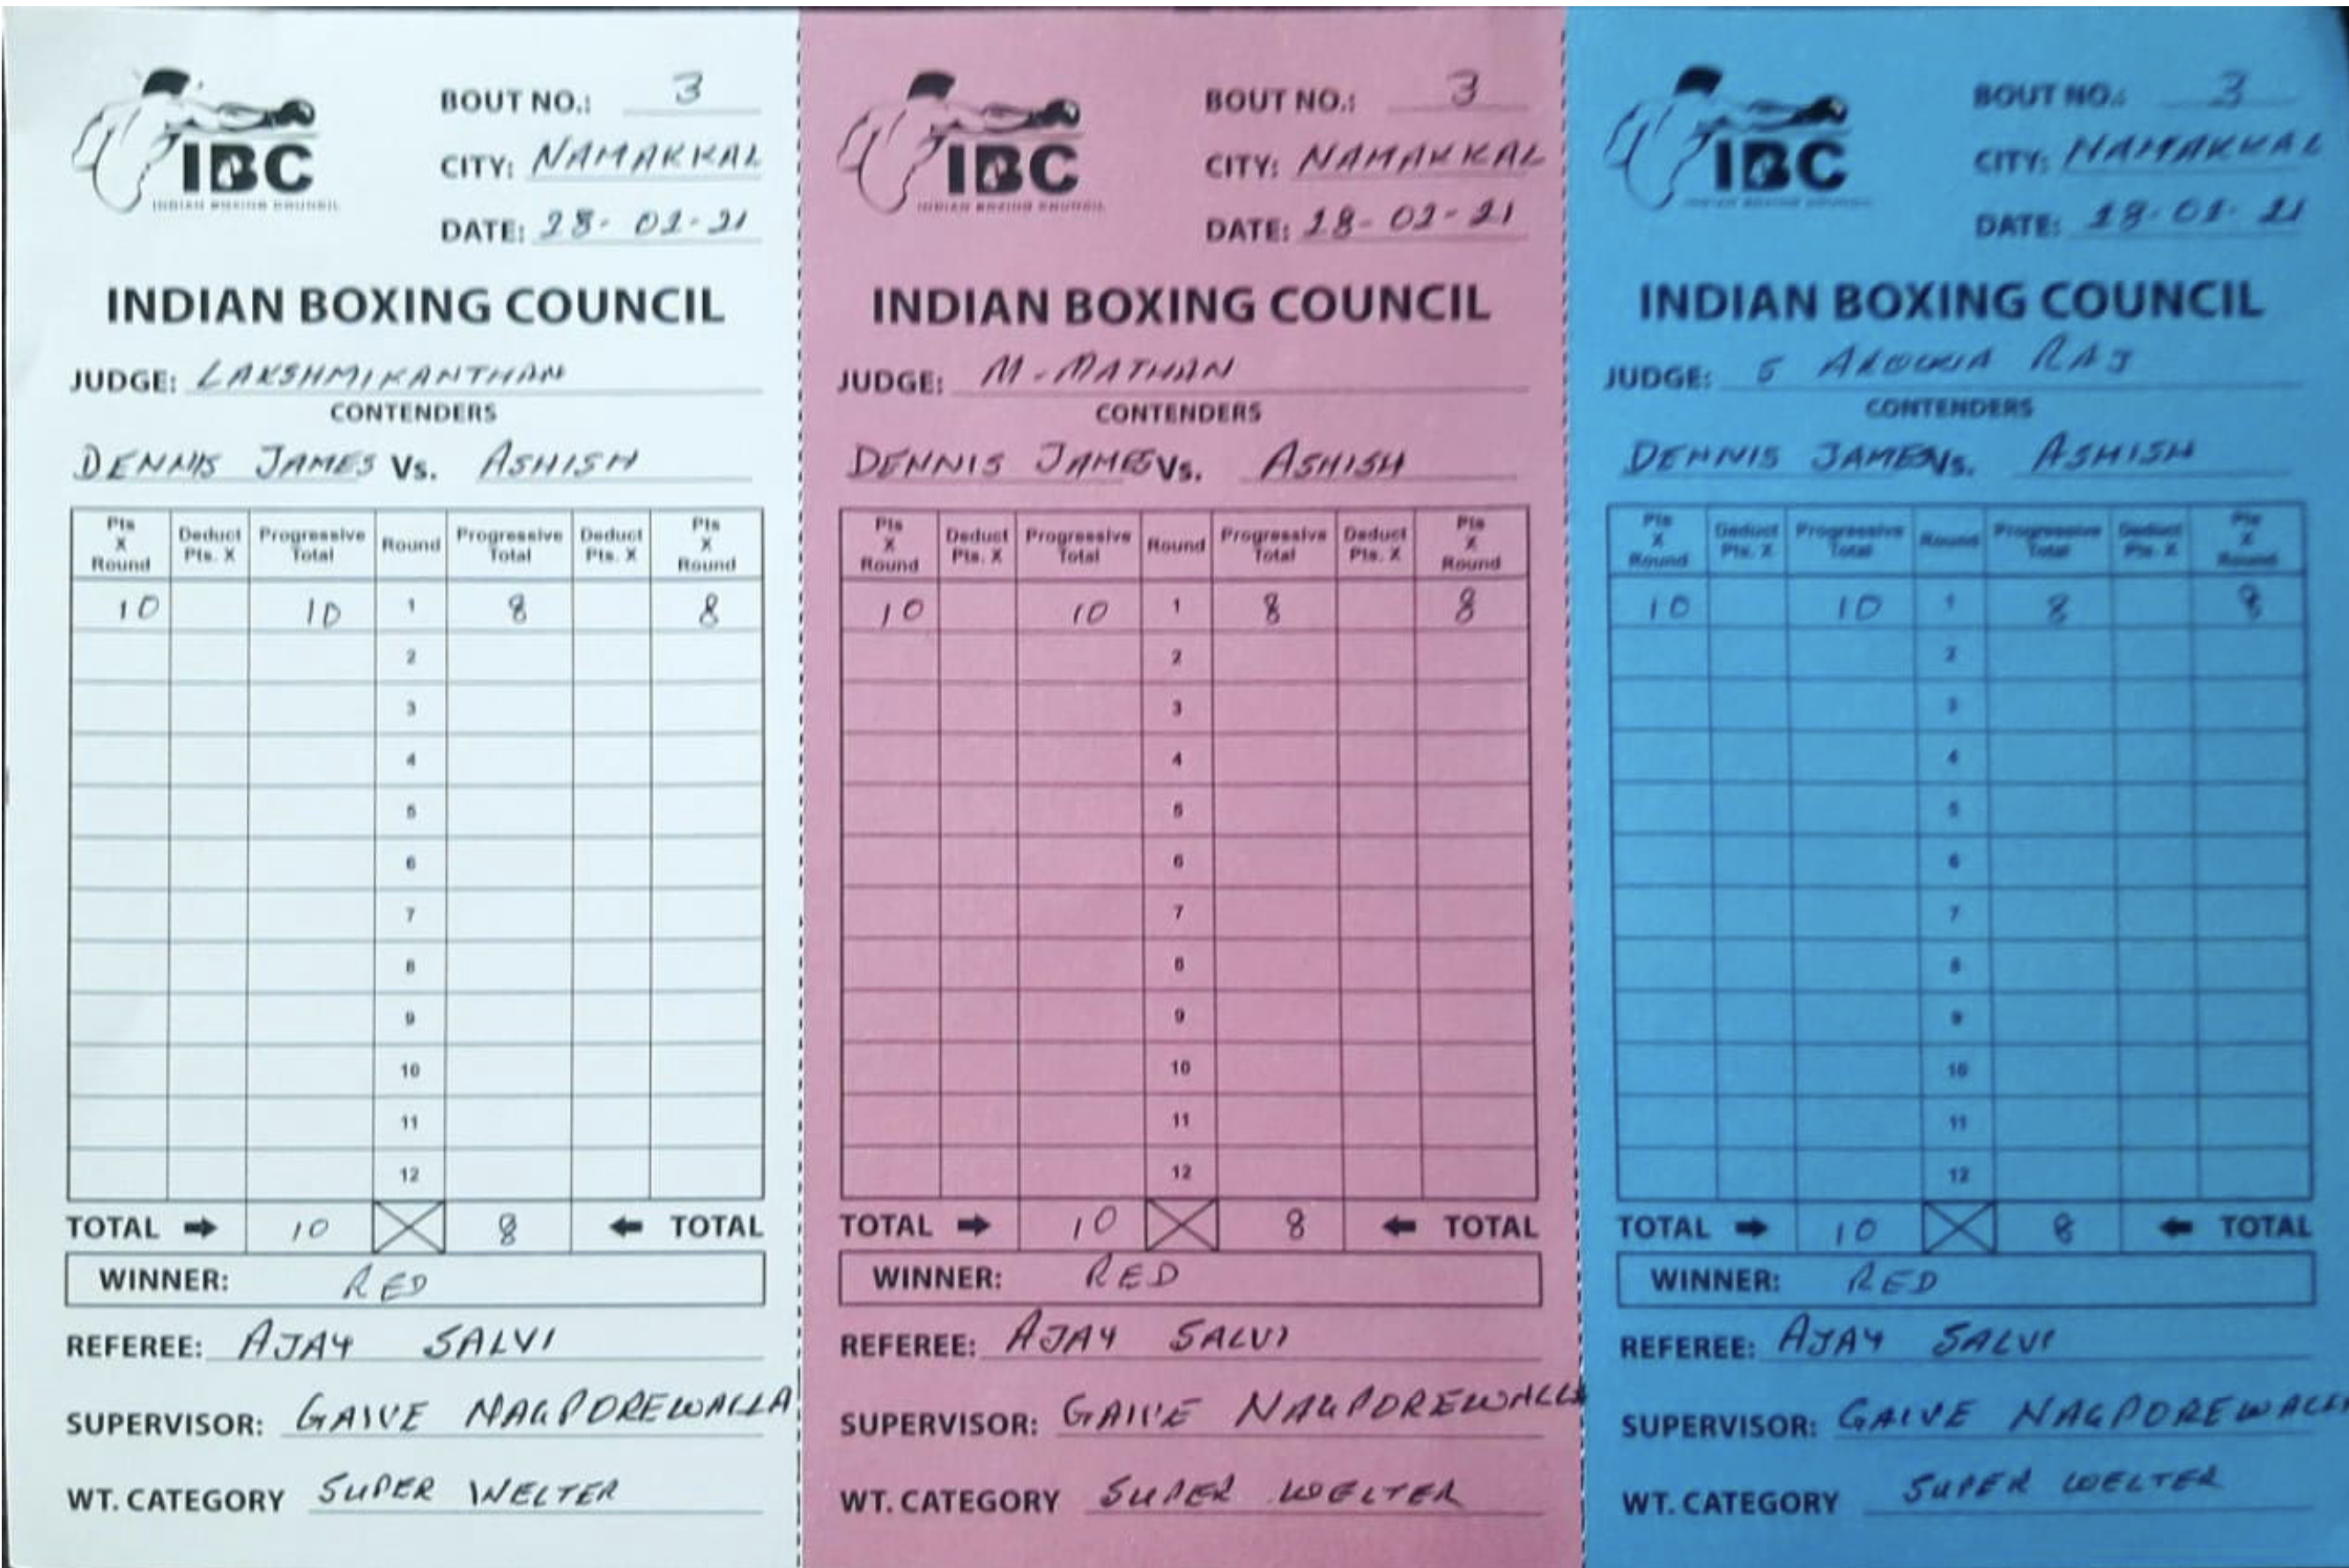 IBC
INDIAN BOXING COUNCIL
BOUT NO.: 3
CITY: NAMAKKAL
DATE: 28-02-21
INDIAN BOXING COUNCIL
JUDGE: LAKSHMIKANTHAN
CONTENDERS
DENNIS JAMES Vs. ASHISH
Pts X Round Deduct Pts. X Progressive Total Round Progressive Total Deduct Pts. X Pts X Round
10 10 1 8 8
2
3
4
5
6
7
8
9
10
11
12
TOTAL → 10 8 ← TOTAL
WINNER: RED
REFEREE: AJAY SALVI
SUPERVISOR: GAIVE NAGPOREWALLA
WT. CATEGORY SUPER WELTER
IBC
INDIAN BOXING COUNCIL
BOUT NO.: 3
CITY: NAMAKKAL
DATE: 28-02-21
INDIAN BOXING COUNCIL
JUDGE: M. MATHAN
CONTENDERS
DENNIS JAMES Vs. ASHISH
Pts X Round Deduct Pts. X Progressive Total Round Progressive Total Deduct Pts. X Pts X Round
10 10 1 8 8
2
3
4
5
6
7
8
9
10
11
12
TOTAL → 10 8 ← TOTAL
WINNER: RED
REFEREE: AJAY SALVI
SUPERVISOR: GAIVE NAGPOREWALLA
WT. CATEGORY SUPER WELTER
IBC
INDIAN BOXING COUNCIL
BOUT NO.: 3
CITY: NAMAKKAL
DATE: 28-02-21
INDIAN BOXING COUNCIL
JUDGE: RAJ
CONTENDERS
DENNIS JAMES Vs. ASHISH
Pts X Round Deduct Pts. X Progressive Total Round Progressive Total Deduct Pts. X Pts X Round
10 10 1 8 8
2
3
4
5
6
7
8
9
10
11
12
TOTAL → 10 8 ← TOTAL
WINNER: RED
REFEREE: AJAY SALVI
SUPERVISOR: GAIVE NAGPOREWALLA
WT. CATEGORY SUPER WELTER